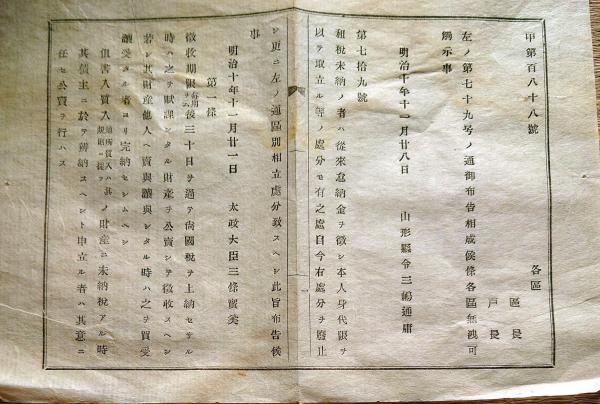 甲第百八十八號
各區
區長
戸長
左ノ第七十九号ノ通御布告相成候條各區無洩可
觸示事
明治十年十一月廿八日 山形縣令三島通庸
第七拾九號
租税未納ノ者ハ從來怠納金ヲ徴シ本人身代限ヲ
以テ取立ル等ノ處分モ有之處自今右處分ヲ廢止
シ更ニ左ノ通區別相立處分致スヘシ此旨布告候
事
明治十年十一月廿一日 太政大臣三條實美
第一條
徴收期限後三十日ヲ過テ尚國税ヲ上納セサル
時ハ之ヲ賦課シタル財産ヲ公賣シテ徴收スヘシ
若シ其財産他人ヘ賣與讓與シタル時ハ之ヲ買受
讓受タル者ヨリ完納セシムヘシ
但書入質入ノ財産ニ未納税アル時
其債主ニ於テ辨納スヘシト申立ル者ハ其意ニ
任セ公賣ヲ行ハス